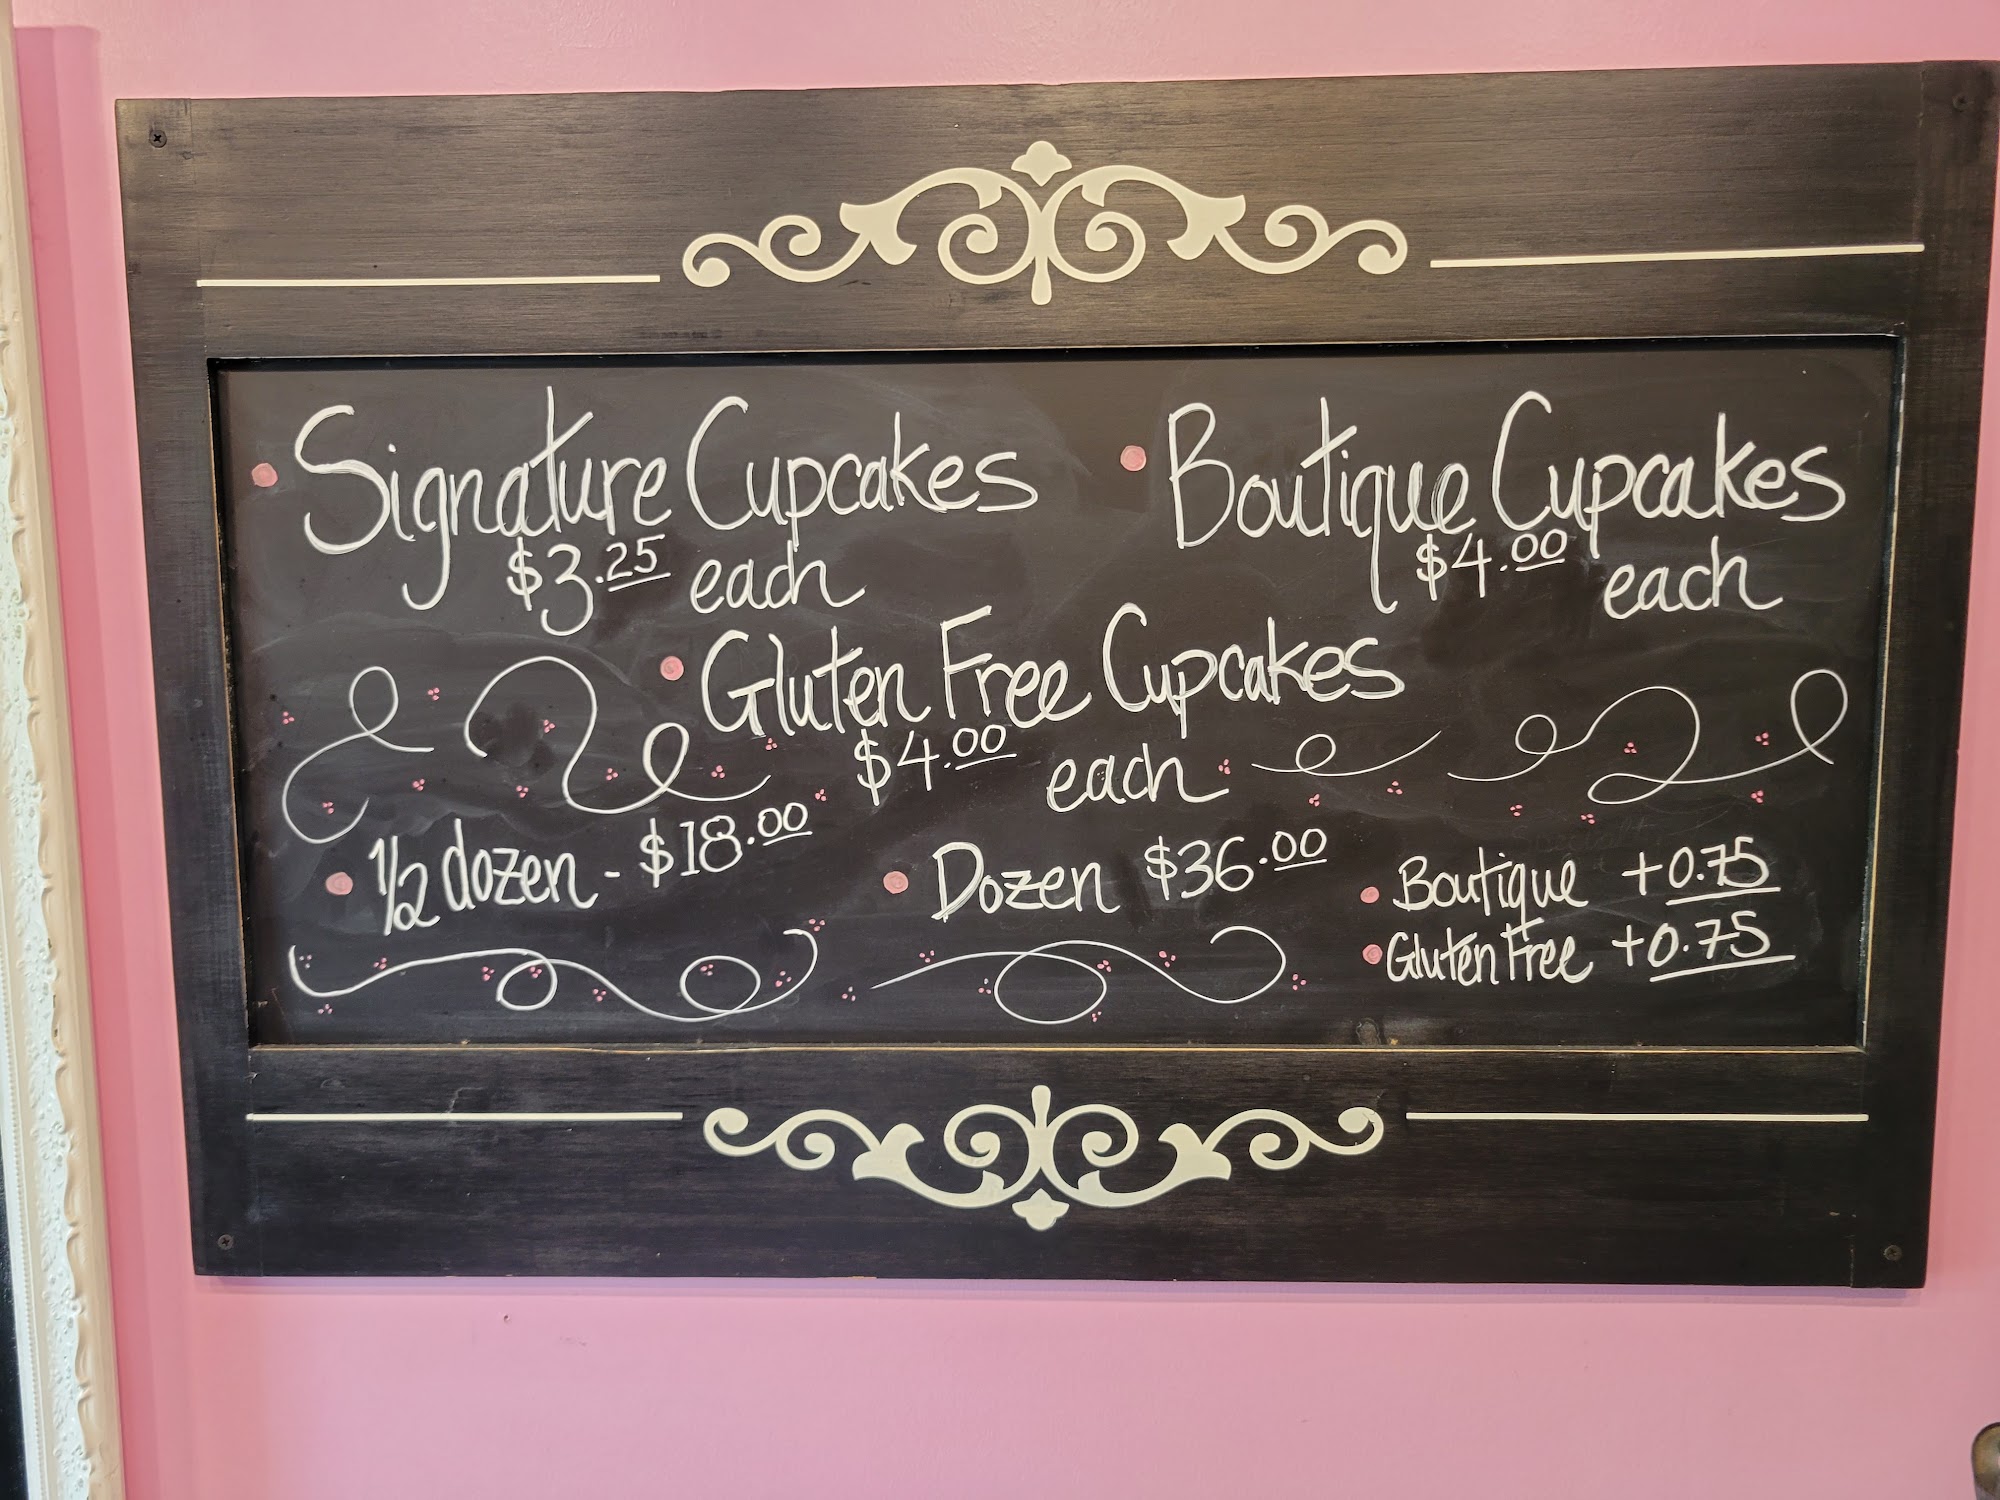 Signature Cupcakes
$3.25 each
Boutique Cupcakes
$4.00 each
Gluten Free Cupcakes
$4.00 each
1/2 dozen - $18.00
Dozen $36.00
Boutique +0.75
Gluten Free +0.75